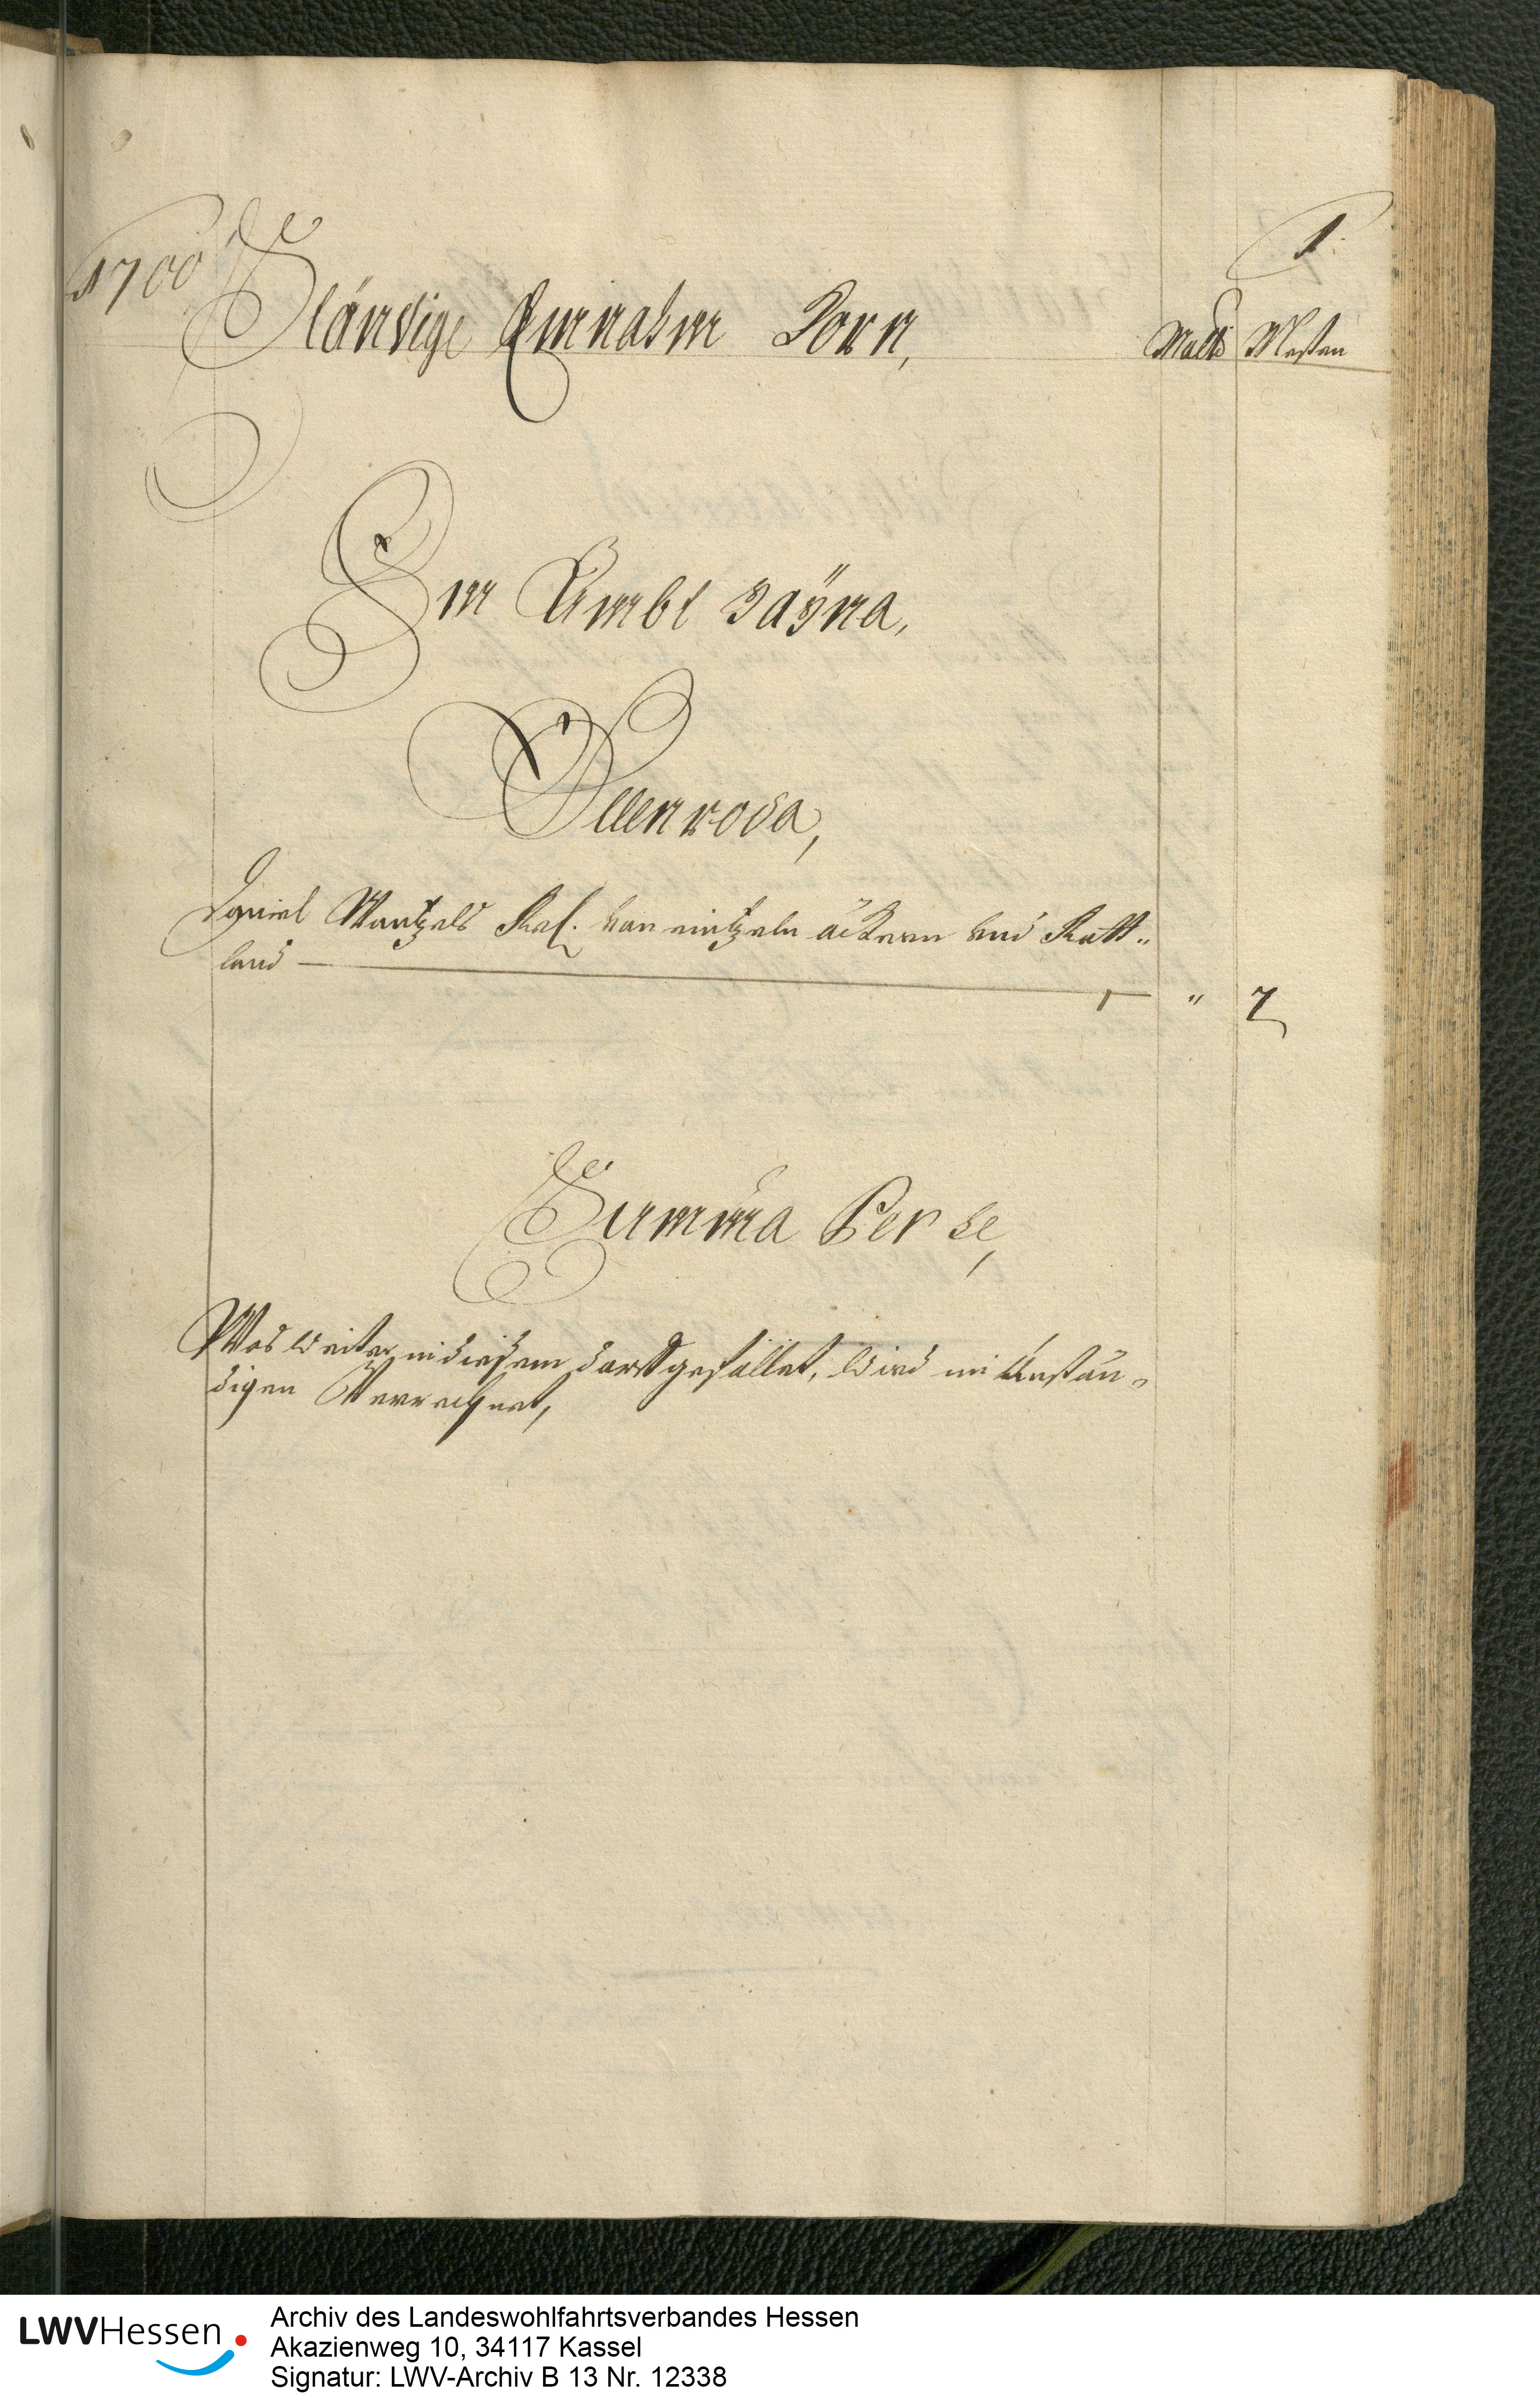 1700
1.
Ständige Einnahm Korn,
Maltr Mesten
Im Ambt Hayna,
Ellenroda,
Daniel Wentzels Rel. von eintzeln äckern und Rott„
land — " 7
Summa Per se,
Was weiter in diesem dorff gefället, wird im Unstän„
digen Verrechnet,
LWVHessen
Archiv des Landeswohlfahrtsverbandes Hessen
Akazienweg 10, 34117 Kassel
Signatur: LWV-Archiv B 13 Nr. 12338